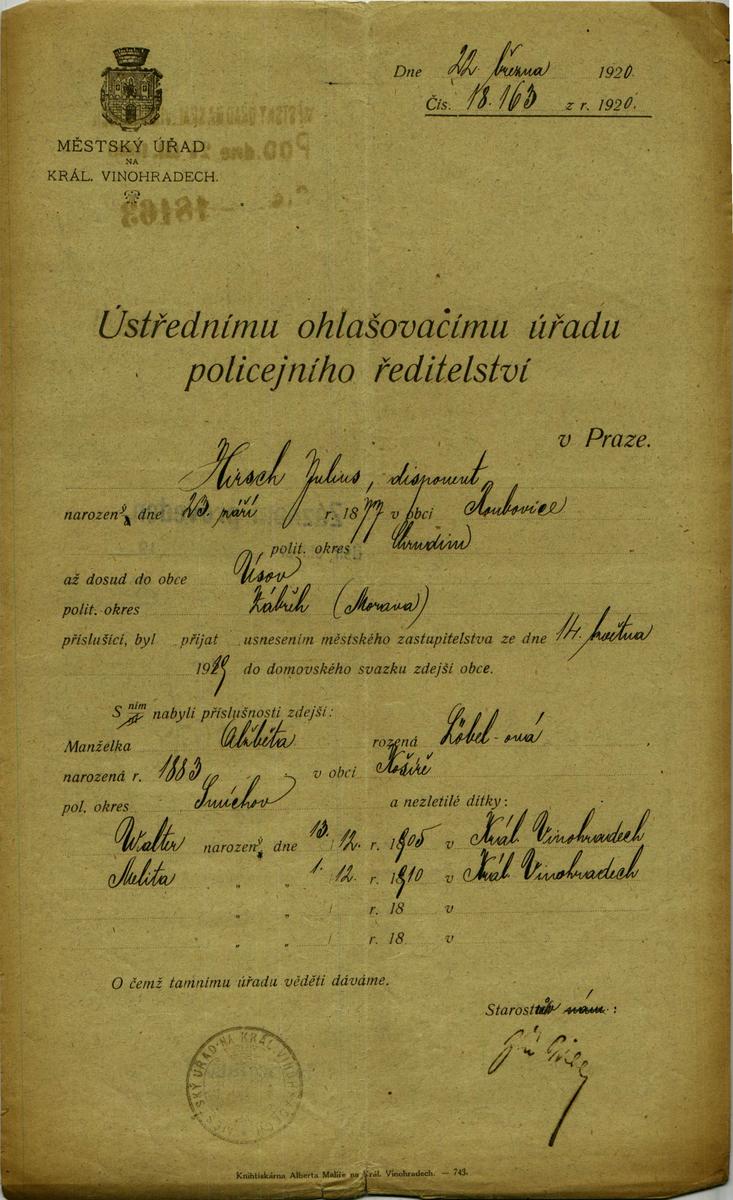 Dne 22. března 1920.
Čís. 18.163 z r. 1920.
MĚSTSKÝ ÚŘAD
NA
KRÁL. VINOHRADECH.
18163
Ústřednímu ohlašovacímu úřadu
policejního ředitelství
v Praze.
Hirsch Julius, disponent
narozený dne 23. září r. 1877 v obci Roubovice
polit. okres Chrudim
až dosud do obce Úsov
polit. okres Zábřeh (Morava)
příslušící, byl přijat usnesením městského zastupitelstva ze dne 14. května
1919 do domovského svazku zdejší obce.
S ním nabyli příslušnosti zdejší:
Manželka Alžběta rozená Löbel-ová
narozená r. 1883 v obci Košíře
pol. okres Smíchov a nezletilé dítky:
Walter narozený dne 13. 12. r. 1905 v Král. Vinohradech
Melita „ „ 1. 12. r. 1910 v Král. Vinohradech
„ „ / r. 18 v
„ „ / r. 18 v
O čemž tamnímu úřadu věděti dáváme.
Starosta:
MĚSTSKÝ ÚŘAD NA KRÁL. VINOHRADECH
Knihtiskárna Alberta Malíře na Král. Vinohradech. — 743.